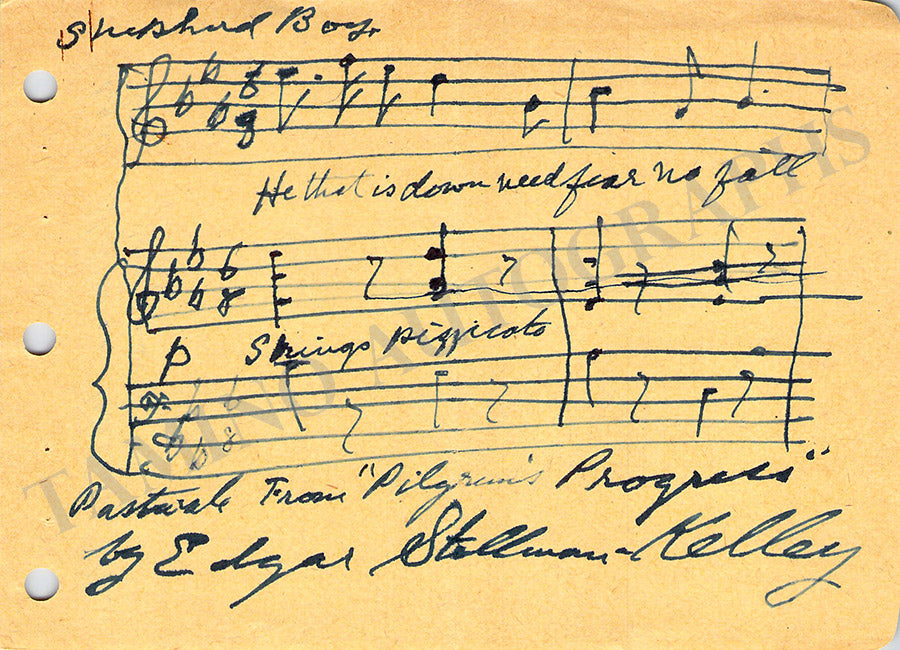 Shepherd Boy
6
8
He that is down need fear no fall
6
8
p Strings pizzicato
6
8
Pastorale From "Pilgrim's Progress"
by Edgar Stillman-Kelley
TAMINO AUTOGRAPHS